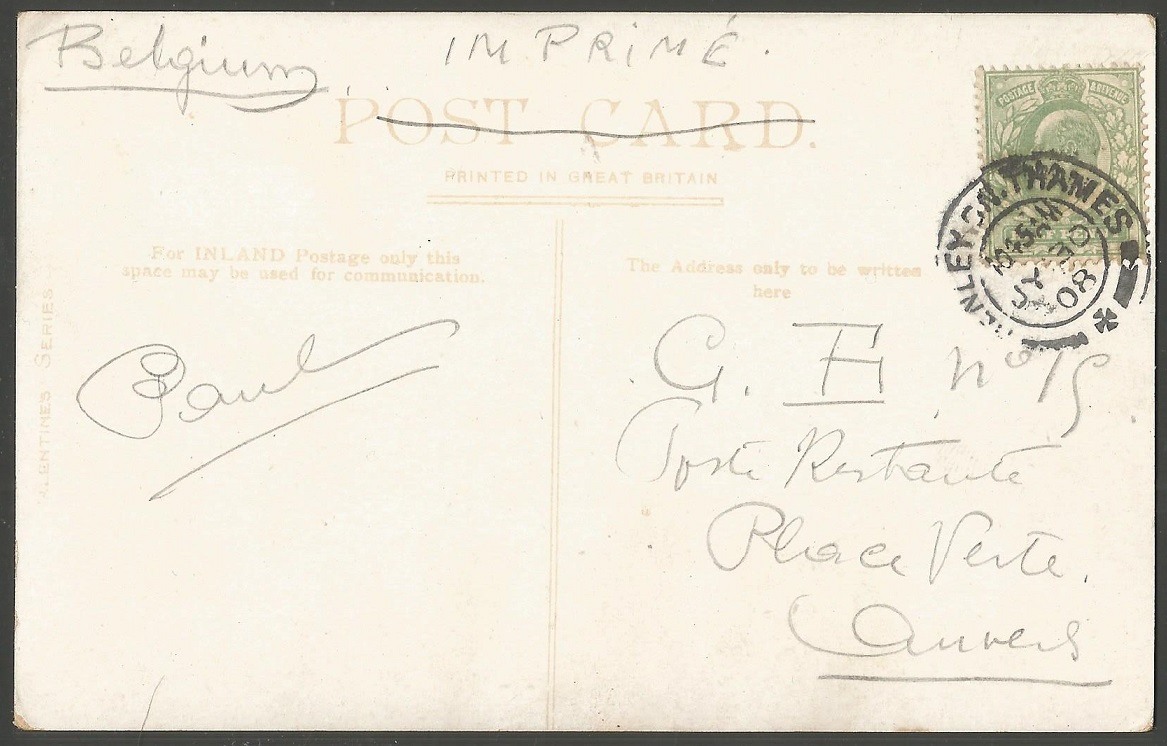 Belgium
IMPRIMÉ.
POST CARD.
PRINTED IN GREAT BRITAIN
POSTAGE & REVENUE
HENLEY-ON-THAMES
10.35AM
JY
08
For INLAND Postage only this
space may be used for communication.
The Address only to be written
here
VALENTINES SERIES
Paul
G. E. no 15
Poste Restante
Place Verte,
Anvers